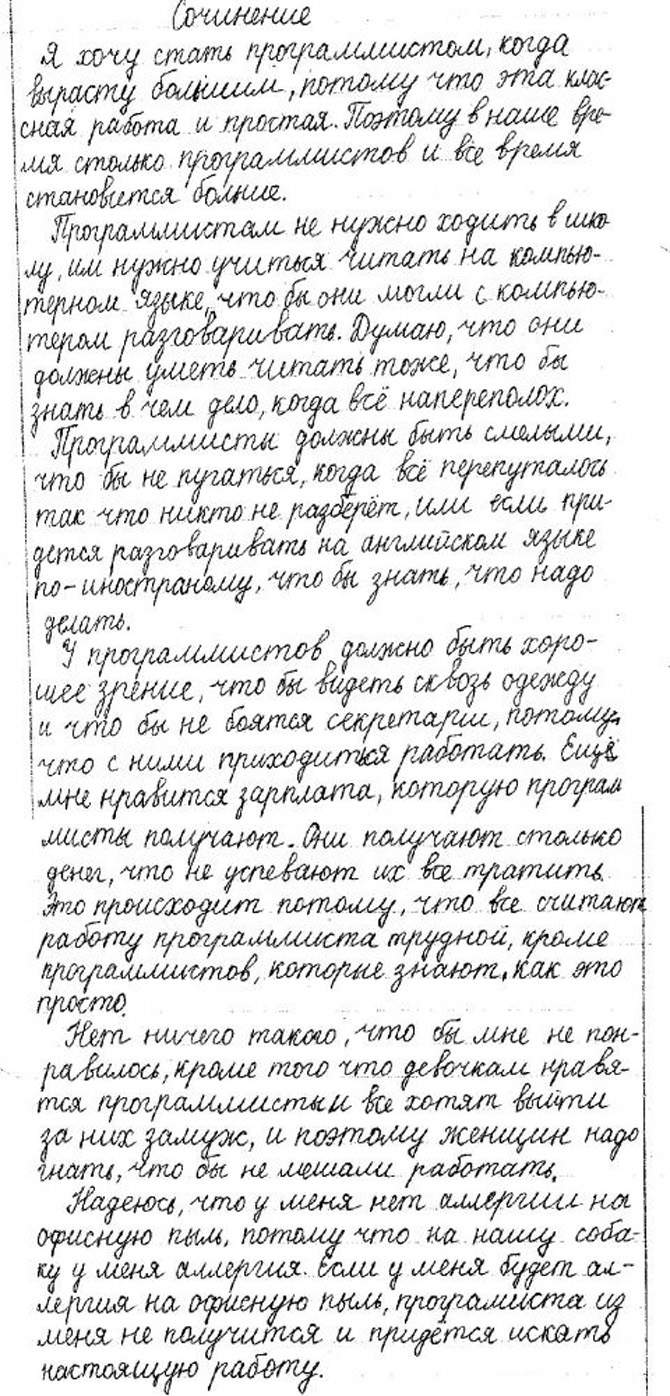 Сочинение
Я хочу стать программистом, когда
вырасту большим, потому что эта клас-
сная работа и простая. Поэтому в наше вре-
мя столько программистов и все время
становится больше.
Программистам не нужно ходить в шко
лу, им нужно учиться читать на компью-
терном языке, что бы они могли с компью-
тером разговаривать. Думаю, что они
должны уметь читать тоже, что бы
знать в чем дело, когда всё наперeполох.
Программисты должны быть смелыми,
что бы не пугаться, когда всё перепуталось
так что никто не разберёт, или если при-
дется разговаривать на английском языке
по-иностраному, что бы знать, что надо
делать.
У программистов должно быть хоро-
шее зрение, что бы видеть сквозь одежду
и что бы не боятся секретарш, потому
что с ними приходиться работать. Ещё
мне нравится зарплата, которую програм
мисты получают. Они получают столько
денег, что не успевают их все тратить.
Это происходит потому, что все считают
работу программиста трудной, кроме
программистов, которые знают, как это
просто.
Нет ничего такого, что бы мне не пон-
равилось, кроме того что девочкам нравя-
тся программисты и все хотят выйти
за них замуж, и поэтому женщин надо
гнать, что бы не мешали работать.
Надеюсь, что у меня нет аллергии на
офисную пыль, потому что на нашу соба-
ку у меня аллергия. Если у меня будет ал-
лергия на офисную пыль, програмиста из
меня не получится и придётся искать
настоящую работу.